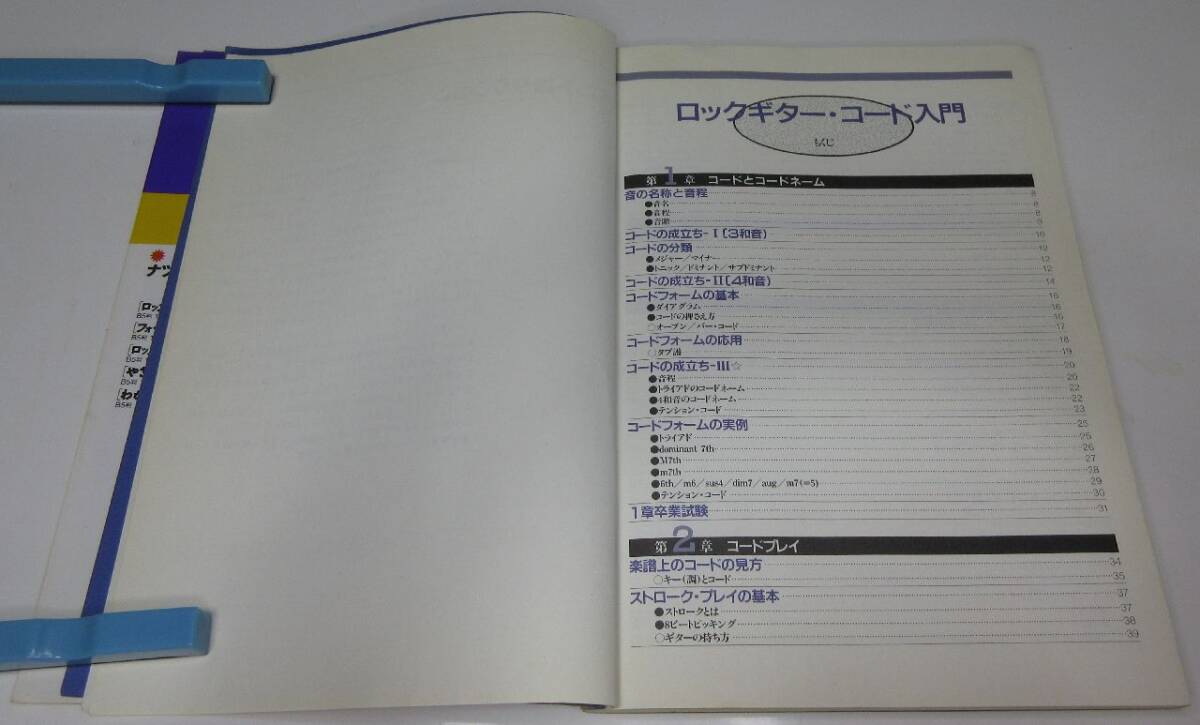 ナツ
[ロッ
B5判
[フォ
B5判
[ロッ
B5判
[やさ
B5判
[わか
B5判
ロックギター・コード入門
もくじ
第1章 コードとコードネーム
音の名称と音程 8
●音名 8
●音程 8
●音階 9
コードの成立ち-I〔3和音〕 10
コードの分類 12
●メジャー／マイナー 12
●トニック／ドミナント／サブドミナント 12
コードの成立ち-II〔4和音〕 14
コードフォームの基本 16
●ダイアグラム 16
●コードの押さえ方 16
○オープン／バー・コード 17
コードフォームの応用 18
○タブ譜 19
コードの成立ち-III☆ 20
●音程 20
●トライアドのコードネーム 22
●4和音のコードネーム 22
●テンション・コード 23
コードフォームの実例 25
●トライアド 25
●dominant 7th 26
●M7th 27
●m7th 28
●6th／m6／sus4／dim7／aug／m7(-5) 29
●テンション・コード 30
1章卒業試験 31
第2章 コードプレイ
楽譜上のコードの見方 34
○キー(調)とコード 35
ストローク・プレイの基本 37
●ストロークとは 37
●8ビートピッキング 38
○ギターの持ち方 39